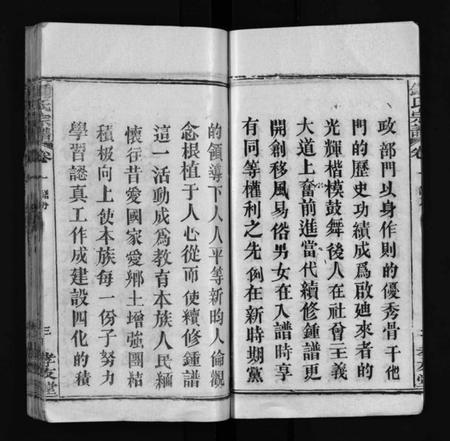 鍾氏宗譜 卷一
政部門以身作則的優秀骨干他
門的歷史功績成爲啟廸來者的
光輝楷模鼓舞後人在社會主義
大道上奮前進當代續修鍾譜更
開創移風易俗男女在入譜時享
有同等權利之先例在新時期黨
的領導下人人平等新的人倫觀
念根植于人心從而使續修鍾譜
這一活動成爲教育本族人民緬
懷往昔愛國家愛鄉土增強團結
積极向上使本族每一份子努力
學習認真工作成建設四化的積
氏宗譜 卷一
三 孝友堂